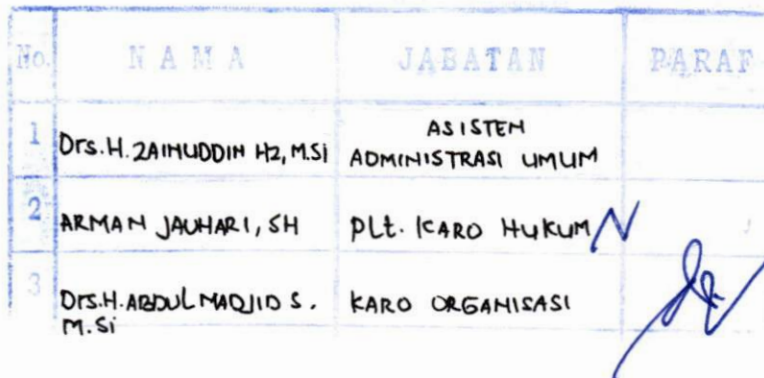 No. NAMA JABATAN PARAF
1 Drs. H. ZAINUDDIN HZ, M.Si ASISTEN
ADMINISTRASI UMUM
2 ARMAN JAUHARI, SH Plt. KARO HUKUM
3 Drs. H. ABDUL MADJID S. KARO ORGANISASI
M.Si